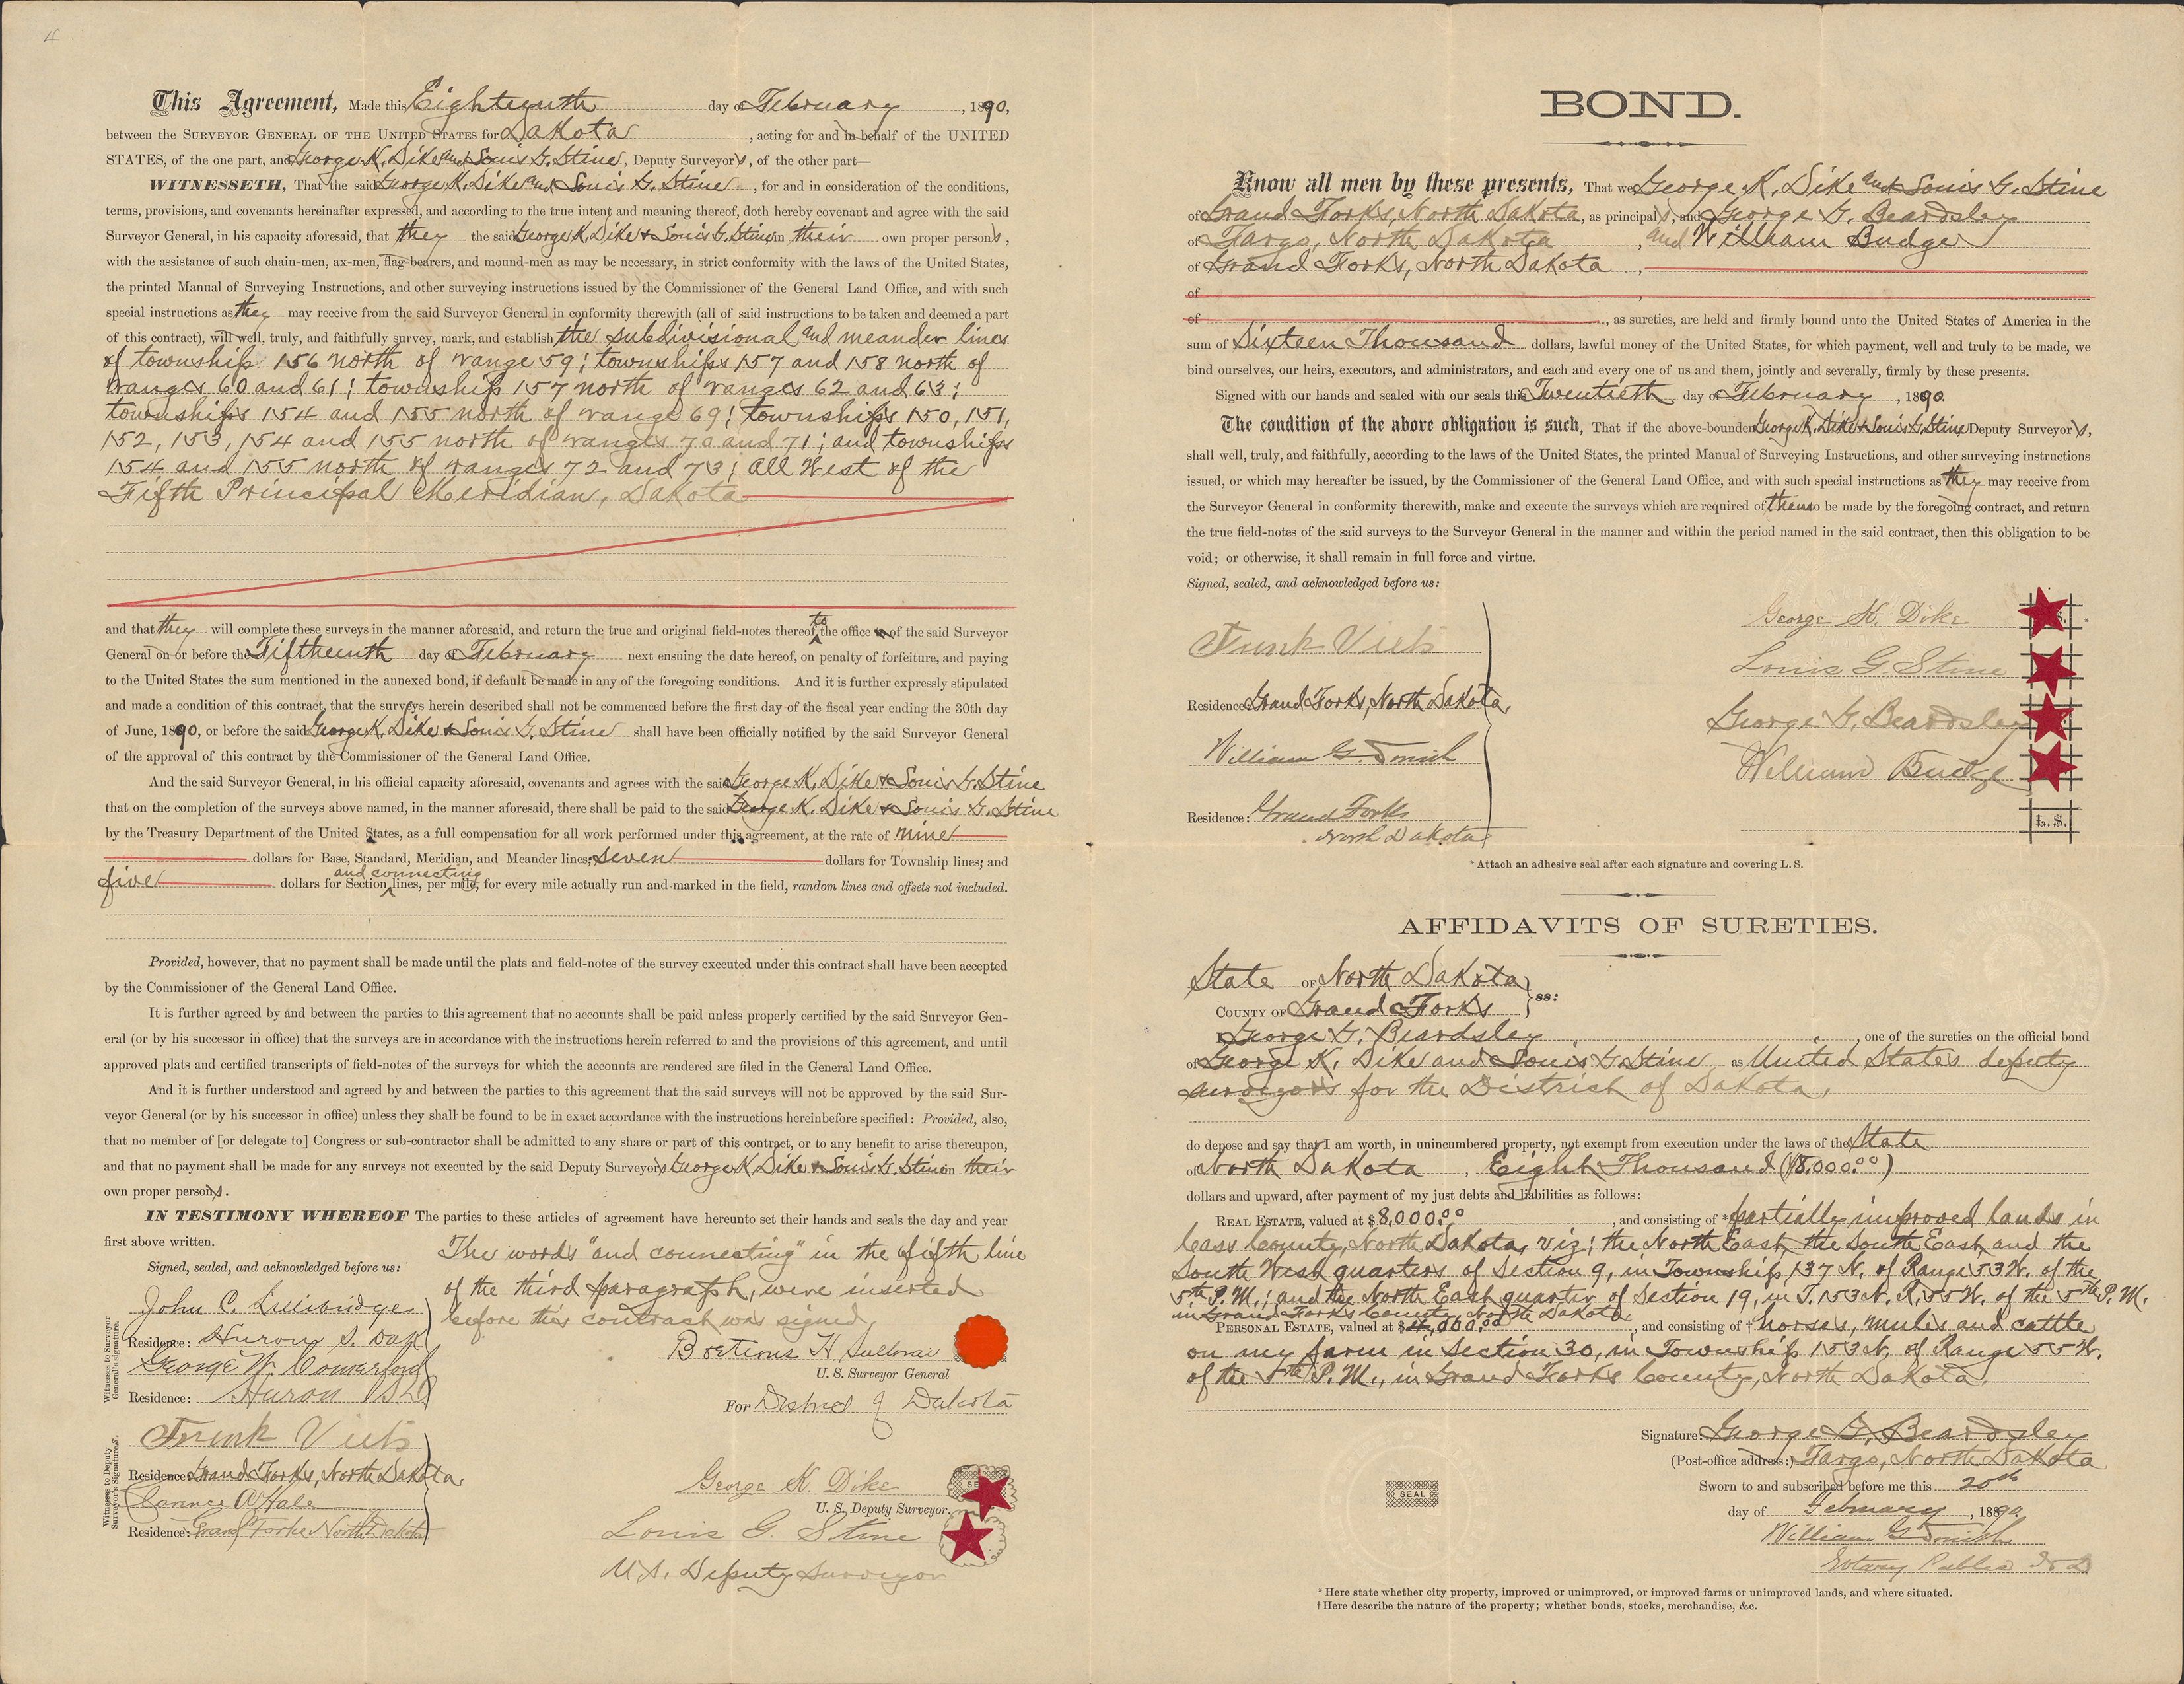 4
This Agreement, Made this Eighteenth day of February, 1890,
between the SURVEYOR GENERAL OF THE UNITED STATES for Dakota, acting for and in behalf of the UNITED
STATES, of the one part, and George K. Dike and Louis G. Stine, Deputy Surveyors, of the other part—
WITNESSETH, That the said George K. Dike and Louis G. Stine, for and in consideration of the conditions,
terms, provisions, and covenants hereinafter expressed, and according to the true intent and meaning thereof, doth hereby covenant and agree with the said
Surveyor General, in his capacity aforesaid, that they the said George K. Dike & Louis G. Stine in their own proper persons,
with the assistance of such chain-men, ax-men, flag-bearers, and mound-men as may be necessary, in strict conformity with the laws of the United States,
the printed Manual of Surveying Instructions, and other surveying instructions issued by the Commissioner of the General Land Office, and with such
special instructions as they may receive from the said Surveyor General in conformity therewith (all of said instructions to be taken and deemed a part
of this contract), will well, truly, and faithfully survey, mark, and establish the subdivisional and meander lines
of township 156 north of range 59; townships 157 and 158 north of
ranges 60 and 61; township 157 north of ranges 62 and 63;
townships 154 and 155 north of range 69; townships 150, 151,
152, 153, 154 and 155 north of ranges 70 and 71; and townships
154 and 155 north of ranges 72 and 73; All West of the
Fifth Principal Meridian, Dakota
and that they will complete these surveys in the manner aforesaid, and return the true and original field-notes thereof to the office of the said Surveyor
General on or before the Fifteenth day of February next ensuing the date hereof, on penalty of forfeiture, and paying
to the United States the sum mentioned in the annexed bond, if default be made in any of the foregoing conditions. And it is further expressly stipulated
and made a condition of this contract, that the surveys herein described shall not be commenced before the first day of the fiscal year ending the 30th day
of June, 1890, or before the said George K. Dike & Louis G. Stine shall have been officially notified by the said Surveyor General
of the approval of this contract by the Commissioner of the General Land Office.
And the said Surveyor General, in his official capacity aforesaid, covenants and agrees with the said George K. Dike & Louis G. Stine
that on the completion of the surveys above named, in the manner aforesaid, there shall be paid to the said George K. Dike & Louis G. Stine
by the Treasury Department of the United States, as a full compensation for all work performed under this agreement, at the rate of nine
dollars for Base, Standard, Meridian, and Meander lines; seven dollars for Township lines; and
five dollars for Section and connecting lines, per mile, for every mile actually run and marked in the field, random lines and offsets not included.
Provided, however, that no payment shall be made until the plats and field-notes of the survey executed under this contract shall have been accepted
by the Commissioner of the General Land Office.
It is further agreed by and between the parties to this agreement that no accounts shall be paid unless properly certified by the said Surveyor Gen-
eral (or by his successor in office) that the surveys are in accordance with the instructions herein referred to and the provisions of this agreement, and until
approved plats and certified transcripts of field-notes of the surveys for which the accounts are rendered are filed in the General Land Office.
And it is further understood and agreed by and between the parties to this agreement that the said surveys will not be approved by the said Sur-
veyor General (or by his successor in office) unless they shall be found to be in exact accordance with the instructions hereinbefore specified: Provided, also,
that no member of [or delegate to] Congress or sub-contractor shall be admitted to any share or part of this contract, or to any benefit to arise thereupon,
and that no payment shall be made for any surveys not executed by the said Deputy Surveyors George K. Dike & Louis G. Stine in their
own proper persons.
IN TESTIMONY WHEREOF The parties to these articles of agreement have hereunto set their hands and seals the day and year
first above written.
Signed, sealed, and acknowledged before us:
The words "and connecting" in the fifth line
of the third paragraph, were inserted
before this contract was signed
Witnesses to Surveyor General's signature.
John C.
Residence: Huron S. Dak
George W. Comerford
Residence: Huron
U. S. Surveyor General
For District of Dakota
Witnesses to Deputy Surveyor's Signatures.
Frank Viets
Residence: Grand Forks, North Dakota
Clarence A Hale
Residence: Grand Forks North Dakota
George K. Dike
U. S. Deputy Surveyor.
Louis G. Stine
U.S. Deputy Surveyor
BOND.
Know all men by these presents, That we George K. Dike and Louis G. Stine
of Grand Forks, North Dakota, as principals, and George G. Beardsley
of Fargo, North Dakota, and William Budge
of Grand Forks, North Dakota,
of
of , as sureties, are held and firmly bound unto the United States of America in the
sum of Sixteen Thousand dollars, lawful money of the United States, for which payment, well and truly to be made, we
bind ourselves, our heirs, executors, and administrators, and each and every one of us and them, jointly and severally, firmly by these presents.
Signed with our hands and sealed with our seals this Twentieth day of February, 1890.
The condition of the above obligation is such, That if the above-bounden George K. Dike & Louis G. Stine Deputy Surveyors,
shall well, truly, and faithfully, according to the laws of the United States, the printed Manual of Surveying Instructions, and other surveying instructions
issued, or which may hereafter be issued, by the Commissioner of the General Land Office, and with such special instructions as they may receive from
the Surveyor General in conformity therewith, make and execute the surveys which are required of them to be made by the foregoing contract, and return
the true field-notes of the said surveys to the Surveyor General in the manner and within the period named in the said contract, then this obligation to be
void; or otherwise, it shall remain in full force and virtue.
Signed, sealed, and acknowledged before us:
Frank Viets
Residence: Grand Forks, North Dakota,
William G.
Residence: Grand Forks
North Dakota
George K. Dike
Louis G. Stine
George G. Beardsley
William Budge
L. S.
* Attach an adhesive seal after each signature and covering L. S.
AFFIDAVITS OF SURETIES.
State OF North Dakota
COUNTY OF Grand Forks } ss:
I George G. Beardsley, one of the sureties on the official bond
of George K. Dike and Louis G. Stine as United States deputy
surveyors for the District of Dakota,
do depose and say that I am worth, in unincumbered property, not exempt from execution under the laws of the State
of North Dakota, Eight Thousand ($8,000.00)
dollars and upward, after payment of my just debts and liabilities as follows:
REAL ESTATE, valued at $8,000.00, and consisting of * partially improved lands in
Cass County, North Dakota, viz; the North East, the South East, and the
South West quarters of Section 9, in Township 137 N. of Range 53 W. of the
5th P.M.; and the North East quarter of Section 19, in T. 153 N. R. 55 W. of the 5th P.M.
in Grand Forks County, North Dakota
PERSONAL ESTATE, valued at $ ,000.00, and consisting of † horses, mules and cattle
on my farm in Section 30, in Township 153 N. of Range 55 W.
of the 5th P.M., in Grand Forks County, North Dakota.
Signature: George G. Beardsley
(Post-office address:) Fargo, North Dakota
SEAL
Sworn to and subscribed before me this 20th
day of February, 1890.
William G.
Notary Public
* Here state whether city property, improved or unimproved, or improved farms or unimproved lands, and where situated.
† Here describe the nature of the property; whether bonds, stocks, merchandise, &c.